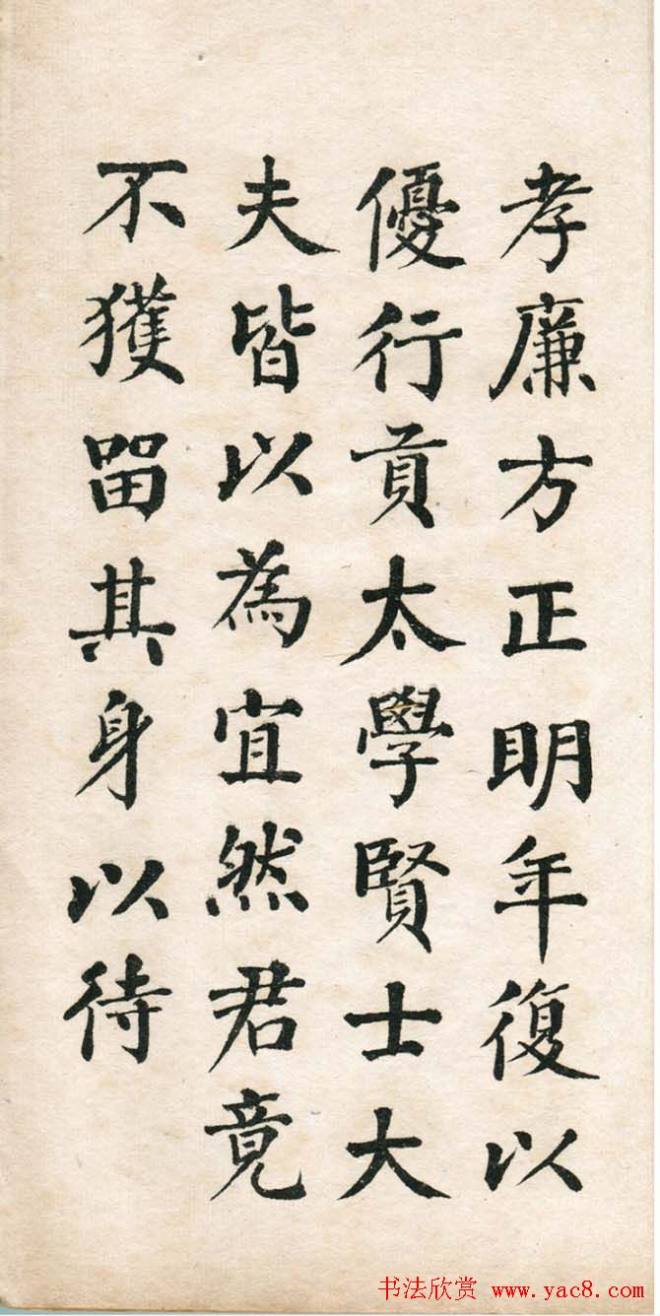 孝廉方正明年復以
優行貢太學賢士大
夫皆以為宜然君竟
不獲畱其身以待
书法欣赏 www.yac8.com